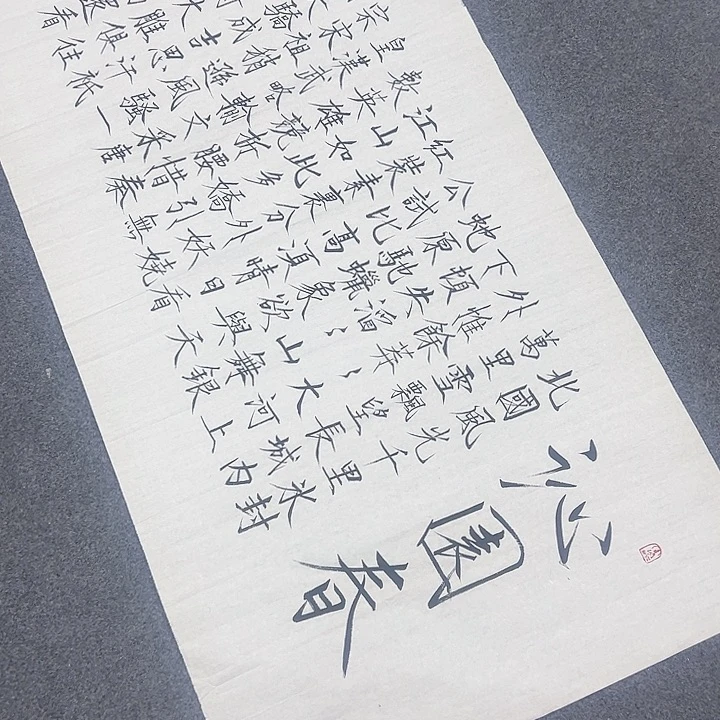 沁園春
北國風光千里冰封
萬里雪飄望長城內
外惟餘莽〻大河上
下頓失滔〻山舞銀
蛇原馳蠟象欲與天
公試比高須晴日看
紅裝素裹分外妖嬈
江山如此多嬌引無
數英雄競折腰惜秦
皇漢武略輸文采唐
宗宋祖稍遜風騷一
驕成吉思汗祇
大雕俱往
還看